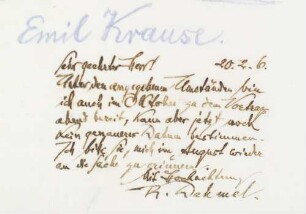 Emil Krause.
Sehr geehrter Herr! 20. 2. 6.
Unter den angegebenen Umständen bin
ich auch im Oktober zu dem Vortrags-
abend bereit, kann aber jetzt noch
kein genaueres Datum bestimmen.
Ich bitte Sie, mich im August wieder
an die Sache zu erinnern.
Mit Hochachtung
R. Dehmel.